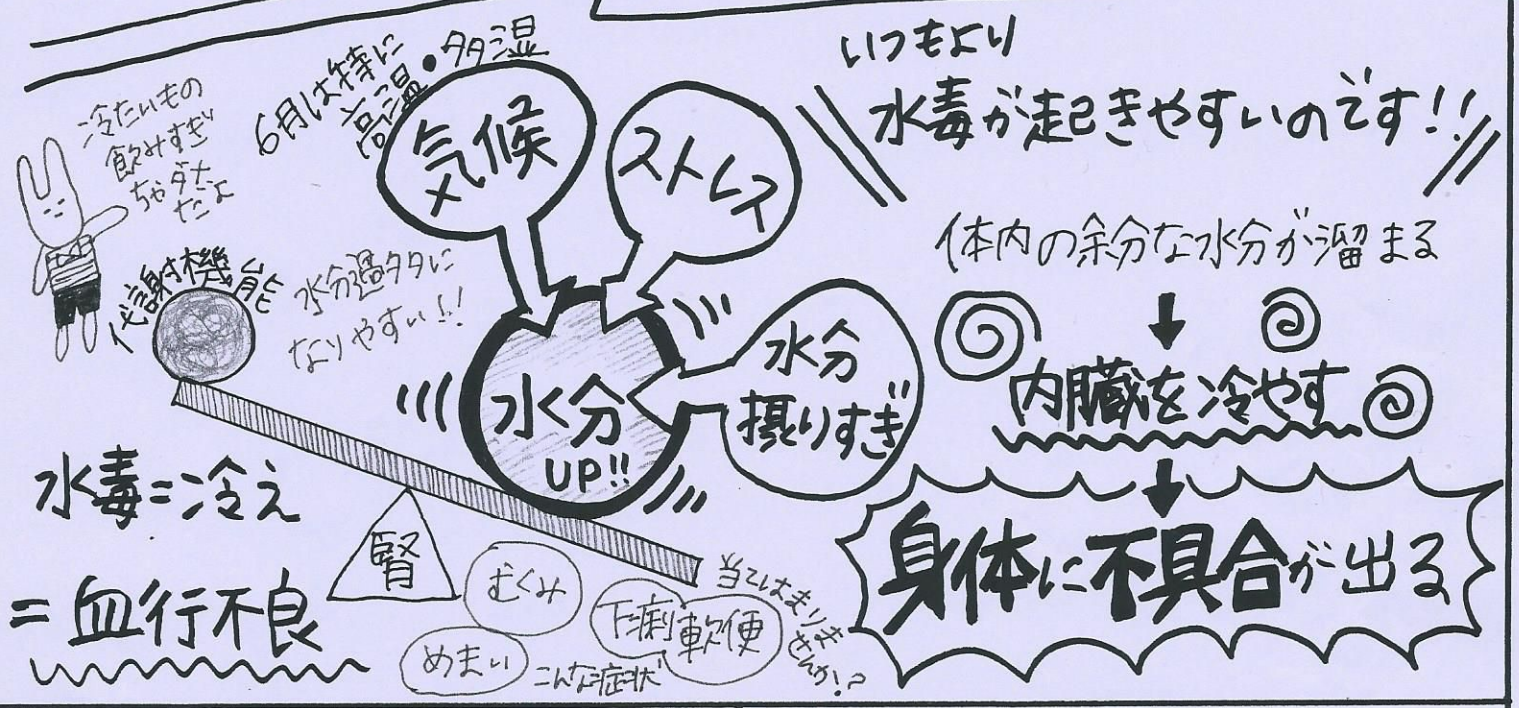 冷たいもの
飲みすぎ
ちゃダメ
だよ
6月は特に
高温・多湿
気候
ストレス
いつもより
水毒が起きやすいのです!!
代謝機能
水分過多に
なりやすい!!
水分
UP!!
水分
摂りすぎ
体内の余分な水分が溜まる
内臓を冷やす
身体に不具合が出る
水毒=冷え
=血行不良
腎
むくみ
めまい
下痢
軟便
こんな症状
当てはまりま
せんか!?